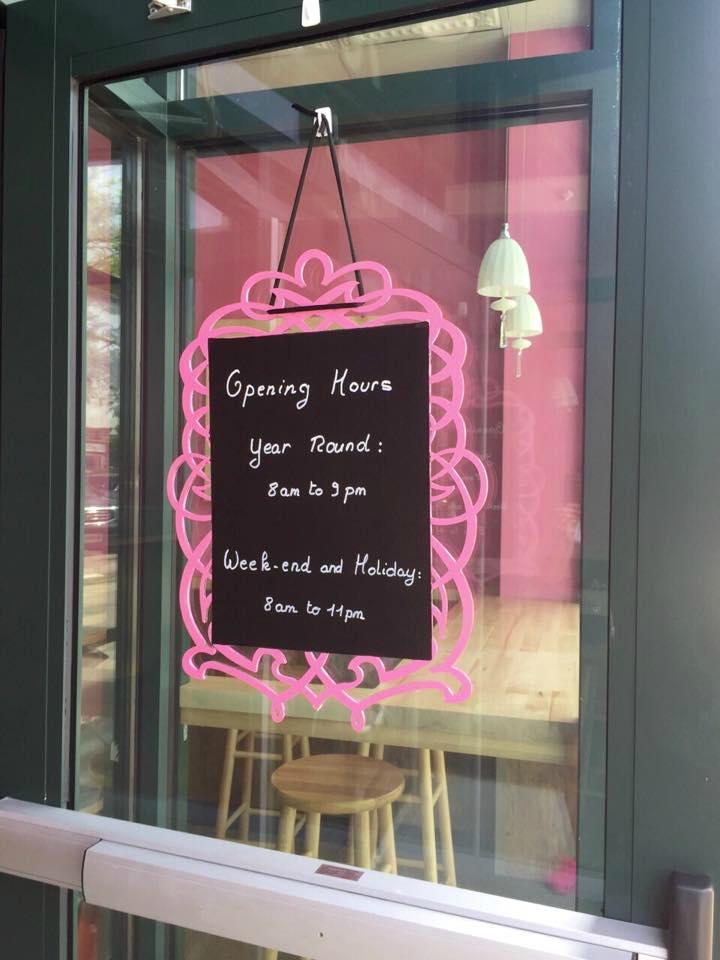 Opening Hours
Year Round:
8am to 9pm
Week-end and Holiday:
8am to 11pm